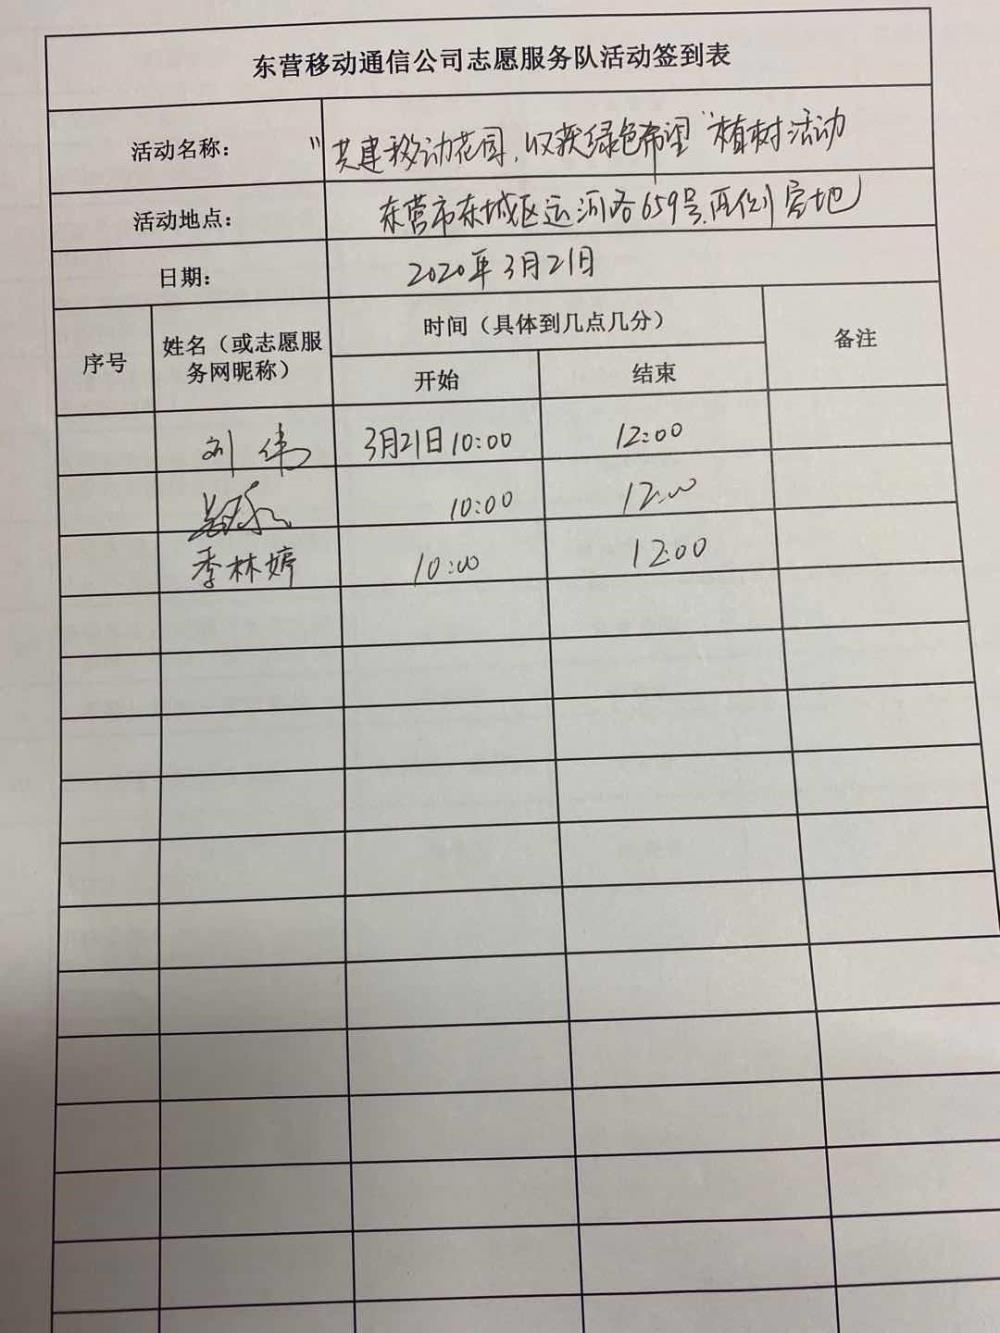 东营移动通信公司志愿服务队活动签到表
活动名称： “共建移动花园，收获绿色希望”植树活动
活动地点： 东营市东城区运河路659号西侧空地
日期： 2020年3月21日
序号 姓名（或志愿服务网昵称） 时间（具体到几点几分） 备注
开始 结束
刘伟 3月21日10:00 12:00
10:00 12:00
季林婷 10:00 12:00